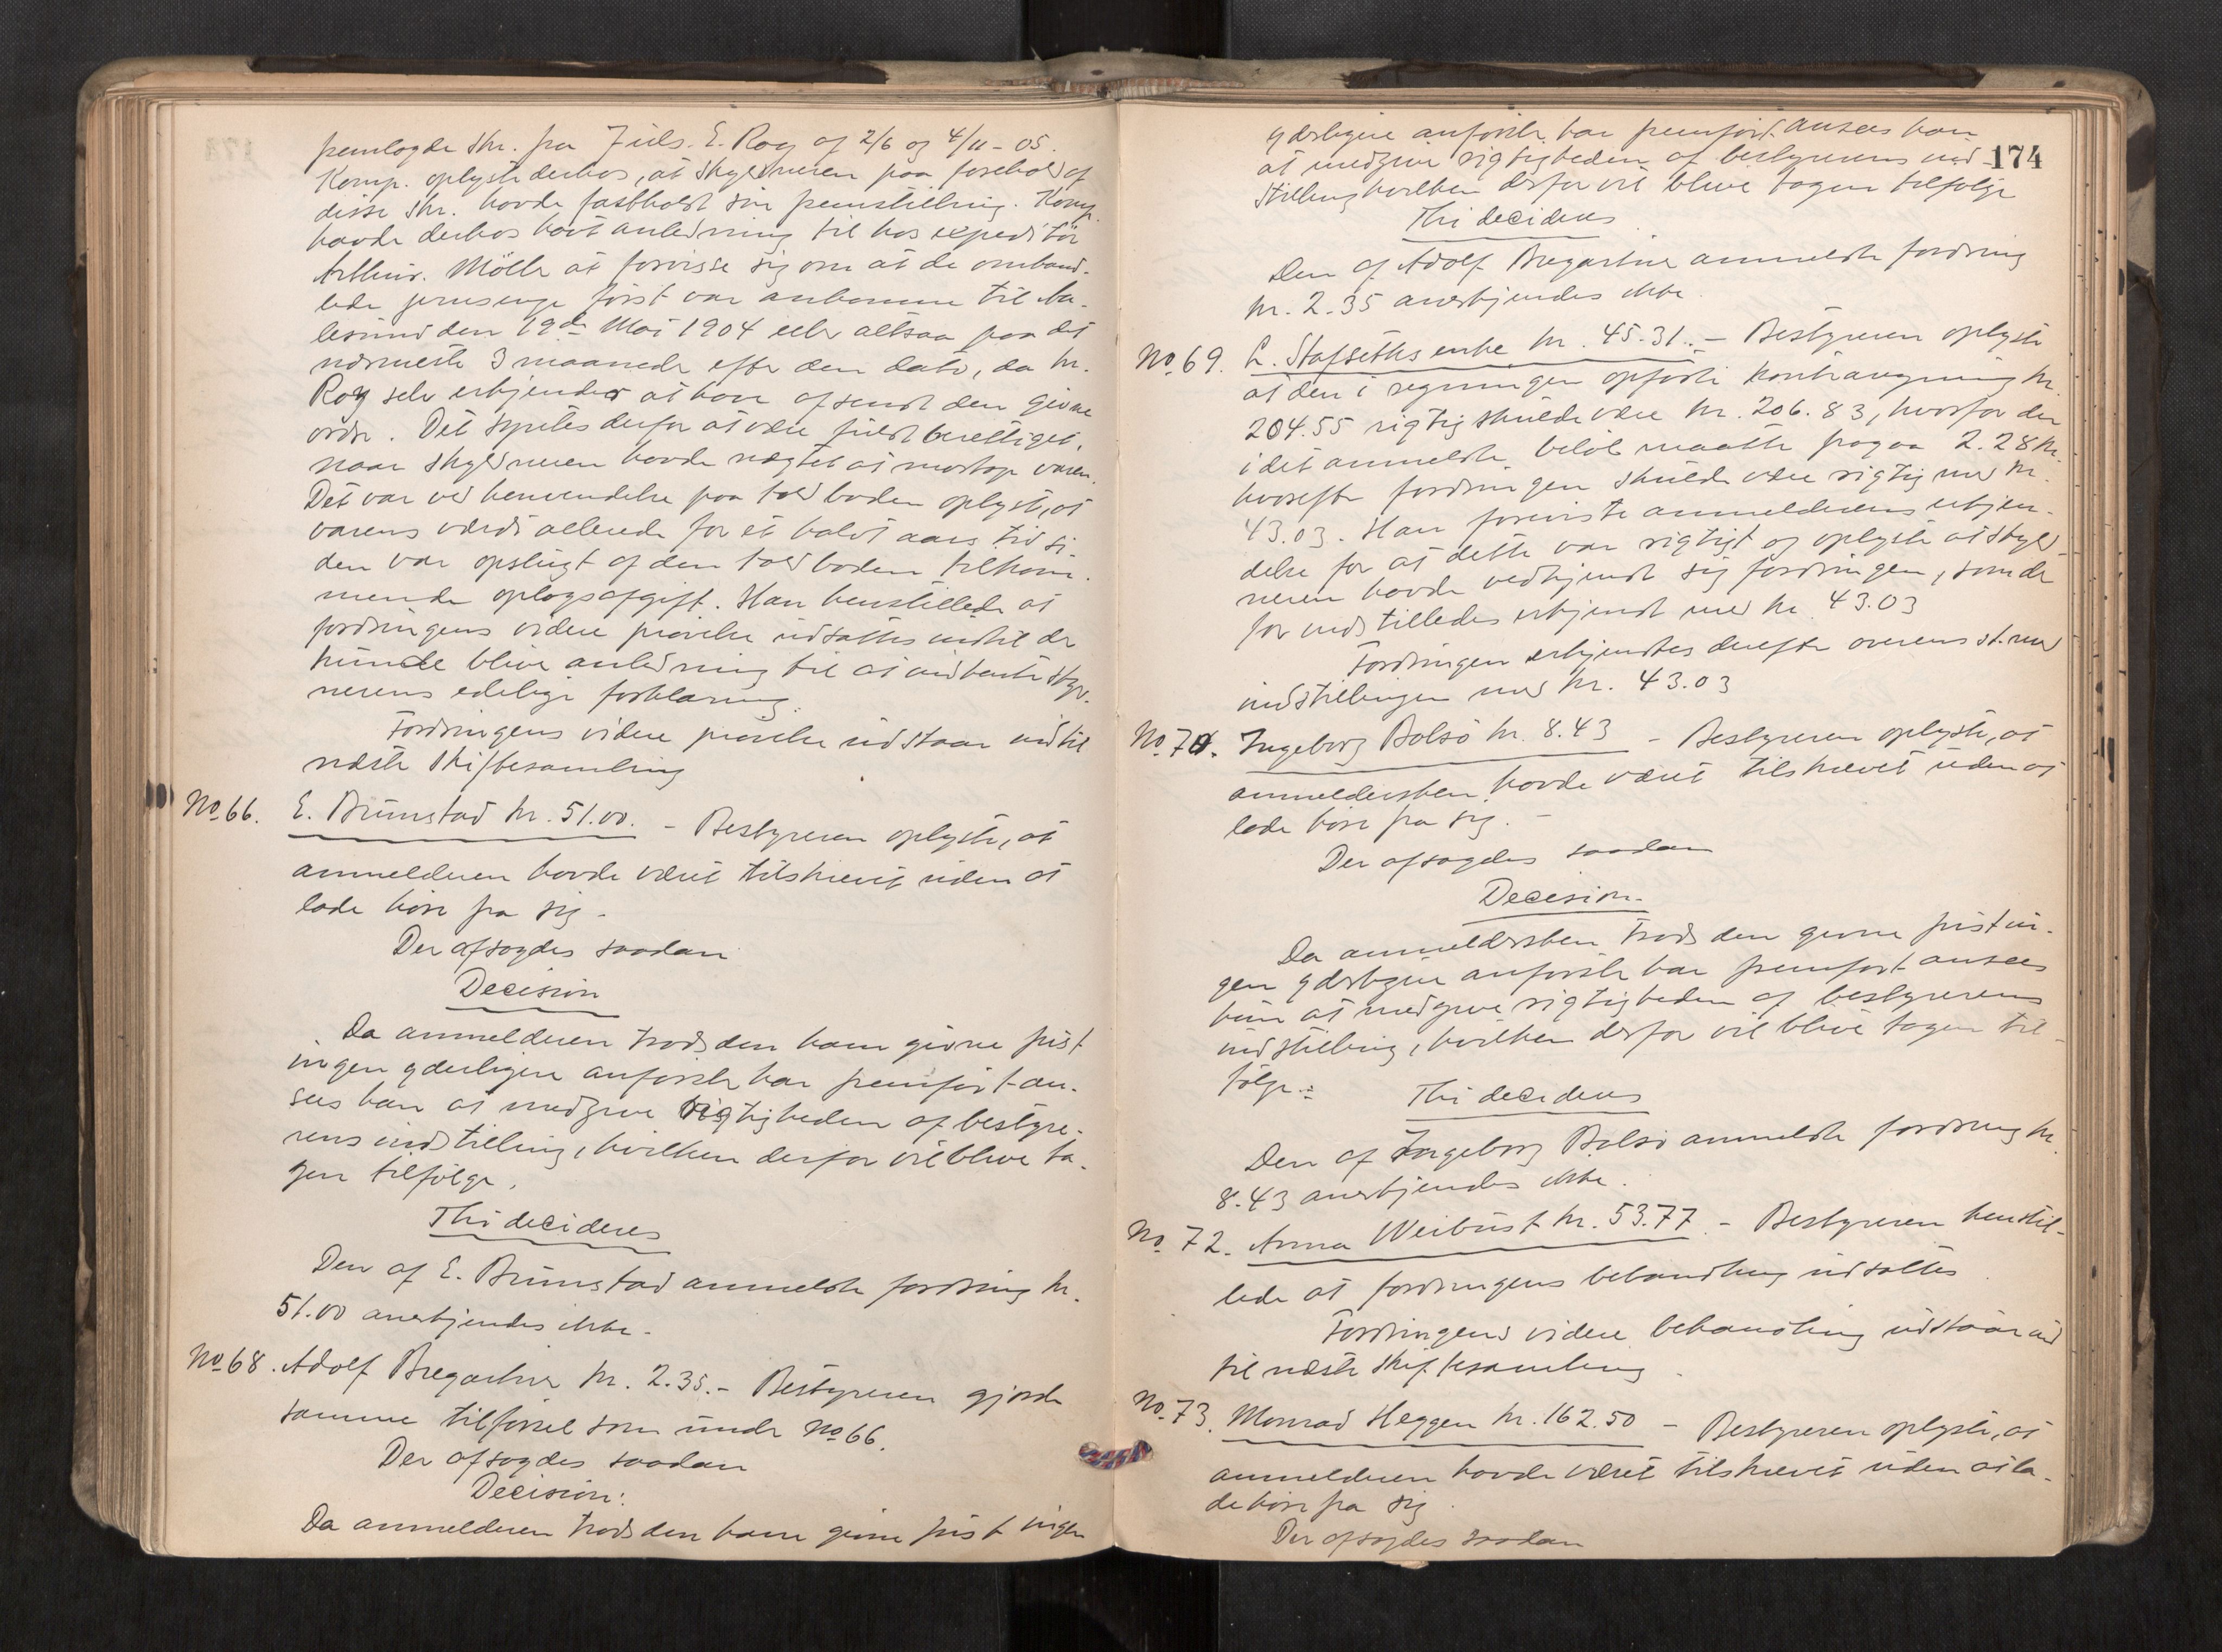 fremlagde skr. fra Fuls. E. Roy af 2/6 og 4/11-05.
Komp. oplyste derhos, at skyldneren paa forehold af
disse skr. havde fastholdt sin fremstilling. Komp.
havde derhos havt anledning til hos expeditør
Arthur. Møller at forvisse sig om at de omhand-
lede jernsenge først var ankomne til Aa-
lesund den 19de Mai 1904 eller altsaa paa det
nærmeste 3 maaneder efter den dato, da hr.
Roy selv erkjender at have afsendt den givne
ordre. Det syntes derfor at være fuldt berettiget,
naar skyldneren havde nægtet at modtage varen.
Det var ved henvendelse paa toldboden oplyst, at
varens værdi allerede for et halvt aars tid si-
den var opslugt af den toldboden tilkom-
mende oplagsafgift. Han henstillede at
fordringens videre prøvelse udsattes indtil der
kunde blive anledning til at indhente skyld-
nerens edelige forklaring.
Fordringens videre prøvelse udstaar indtil
næste skiftesamling
No 66. E. Brunstad kr. 51.00. - Bestyreren oplyste, at
anmelderen havde været tilskrevet uden at
lade høre fra sig.
Der afsagdes saadan
Decision
Da anmelderen trods den ham givne frist
ingen yderligere anførsler har fremført an-
sees han at medgive rigtigheden af besty­re-
rens indstilling, hvilken derfor vil blive ta-
gen tilfølge.
Thi decideres
Den af E. Brunstad anmeldte fordring kr.
51.00 anerkjendes ikke.
No 68. Adolf Bregartner kr. 2.35.- Bestyreren gjorde
samme tilførsel som under No 66.
Der afsagdes saadan
Decision:
Da anmelderen trods den ham givne frist ingen
174
yderligere anførsler har fremført ansees han
at medgive rigtigheden af bestyrerens ind-
stilling hvilken derfor vil blive tagen tilfølge
Thi decideres
Den af Adolf Bregartner anmeldte fordring
kr. 2.35 anerkjendes ikke.
No 69. L. Stafseths enke kr. 45.31. - Bestyreren oplyste
at den i regningen opførte kontraregning kr.
204.55 rigtig skulde være kr. 206.83, hvorfor der
i det anmeldte beløb maatte fragaa 2.28 kr.
hvorefter fordringen skulde være rigtig med kr.
43.03. Han foreviste anmelderens erkjen-
delse for at dette var rigtigt og oplyste at skyld-
neren havde vedkjendt sig fordringen, som der-
for indstilledes erkjendt med kr. 43.03
Fordringen erkjendtes derefter overensst. med
indstillingen med kr. 43.03
No 70. Ingeborg Bolsø kr. 8.43 - Bestyreren oplyste, at
anmeldersken havde været tilskrevet uden at
lade høre fra sig. -
Der afsagdes saadan
Decision.
Da anmeldersken trods den givne frist in-
gen yderligere anførsler har fremført ansees
hun at medgive rigtigheden af bestyrerens
indstilling, hvilken derfor vil blive tagen til-
følge.:
Thi decideres
Den af Ingeborg Bolsø anmeldte fordring kr.
8.43 anerkjendes ikke.
No 72. Anna Weibust kr. 53.77. - Bestyreren henstil-
lede at fordringens behandling udsattes
Fordringens videre behandling udstaar ind
til næste skiftesamling.
No 73. Monrad Heggen kr. 162.50 - Bestyreren oplyste, at
anmelderen havde været tilskrevet uden at la-
de høre fra sig.
Der afsagdes saadan